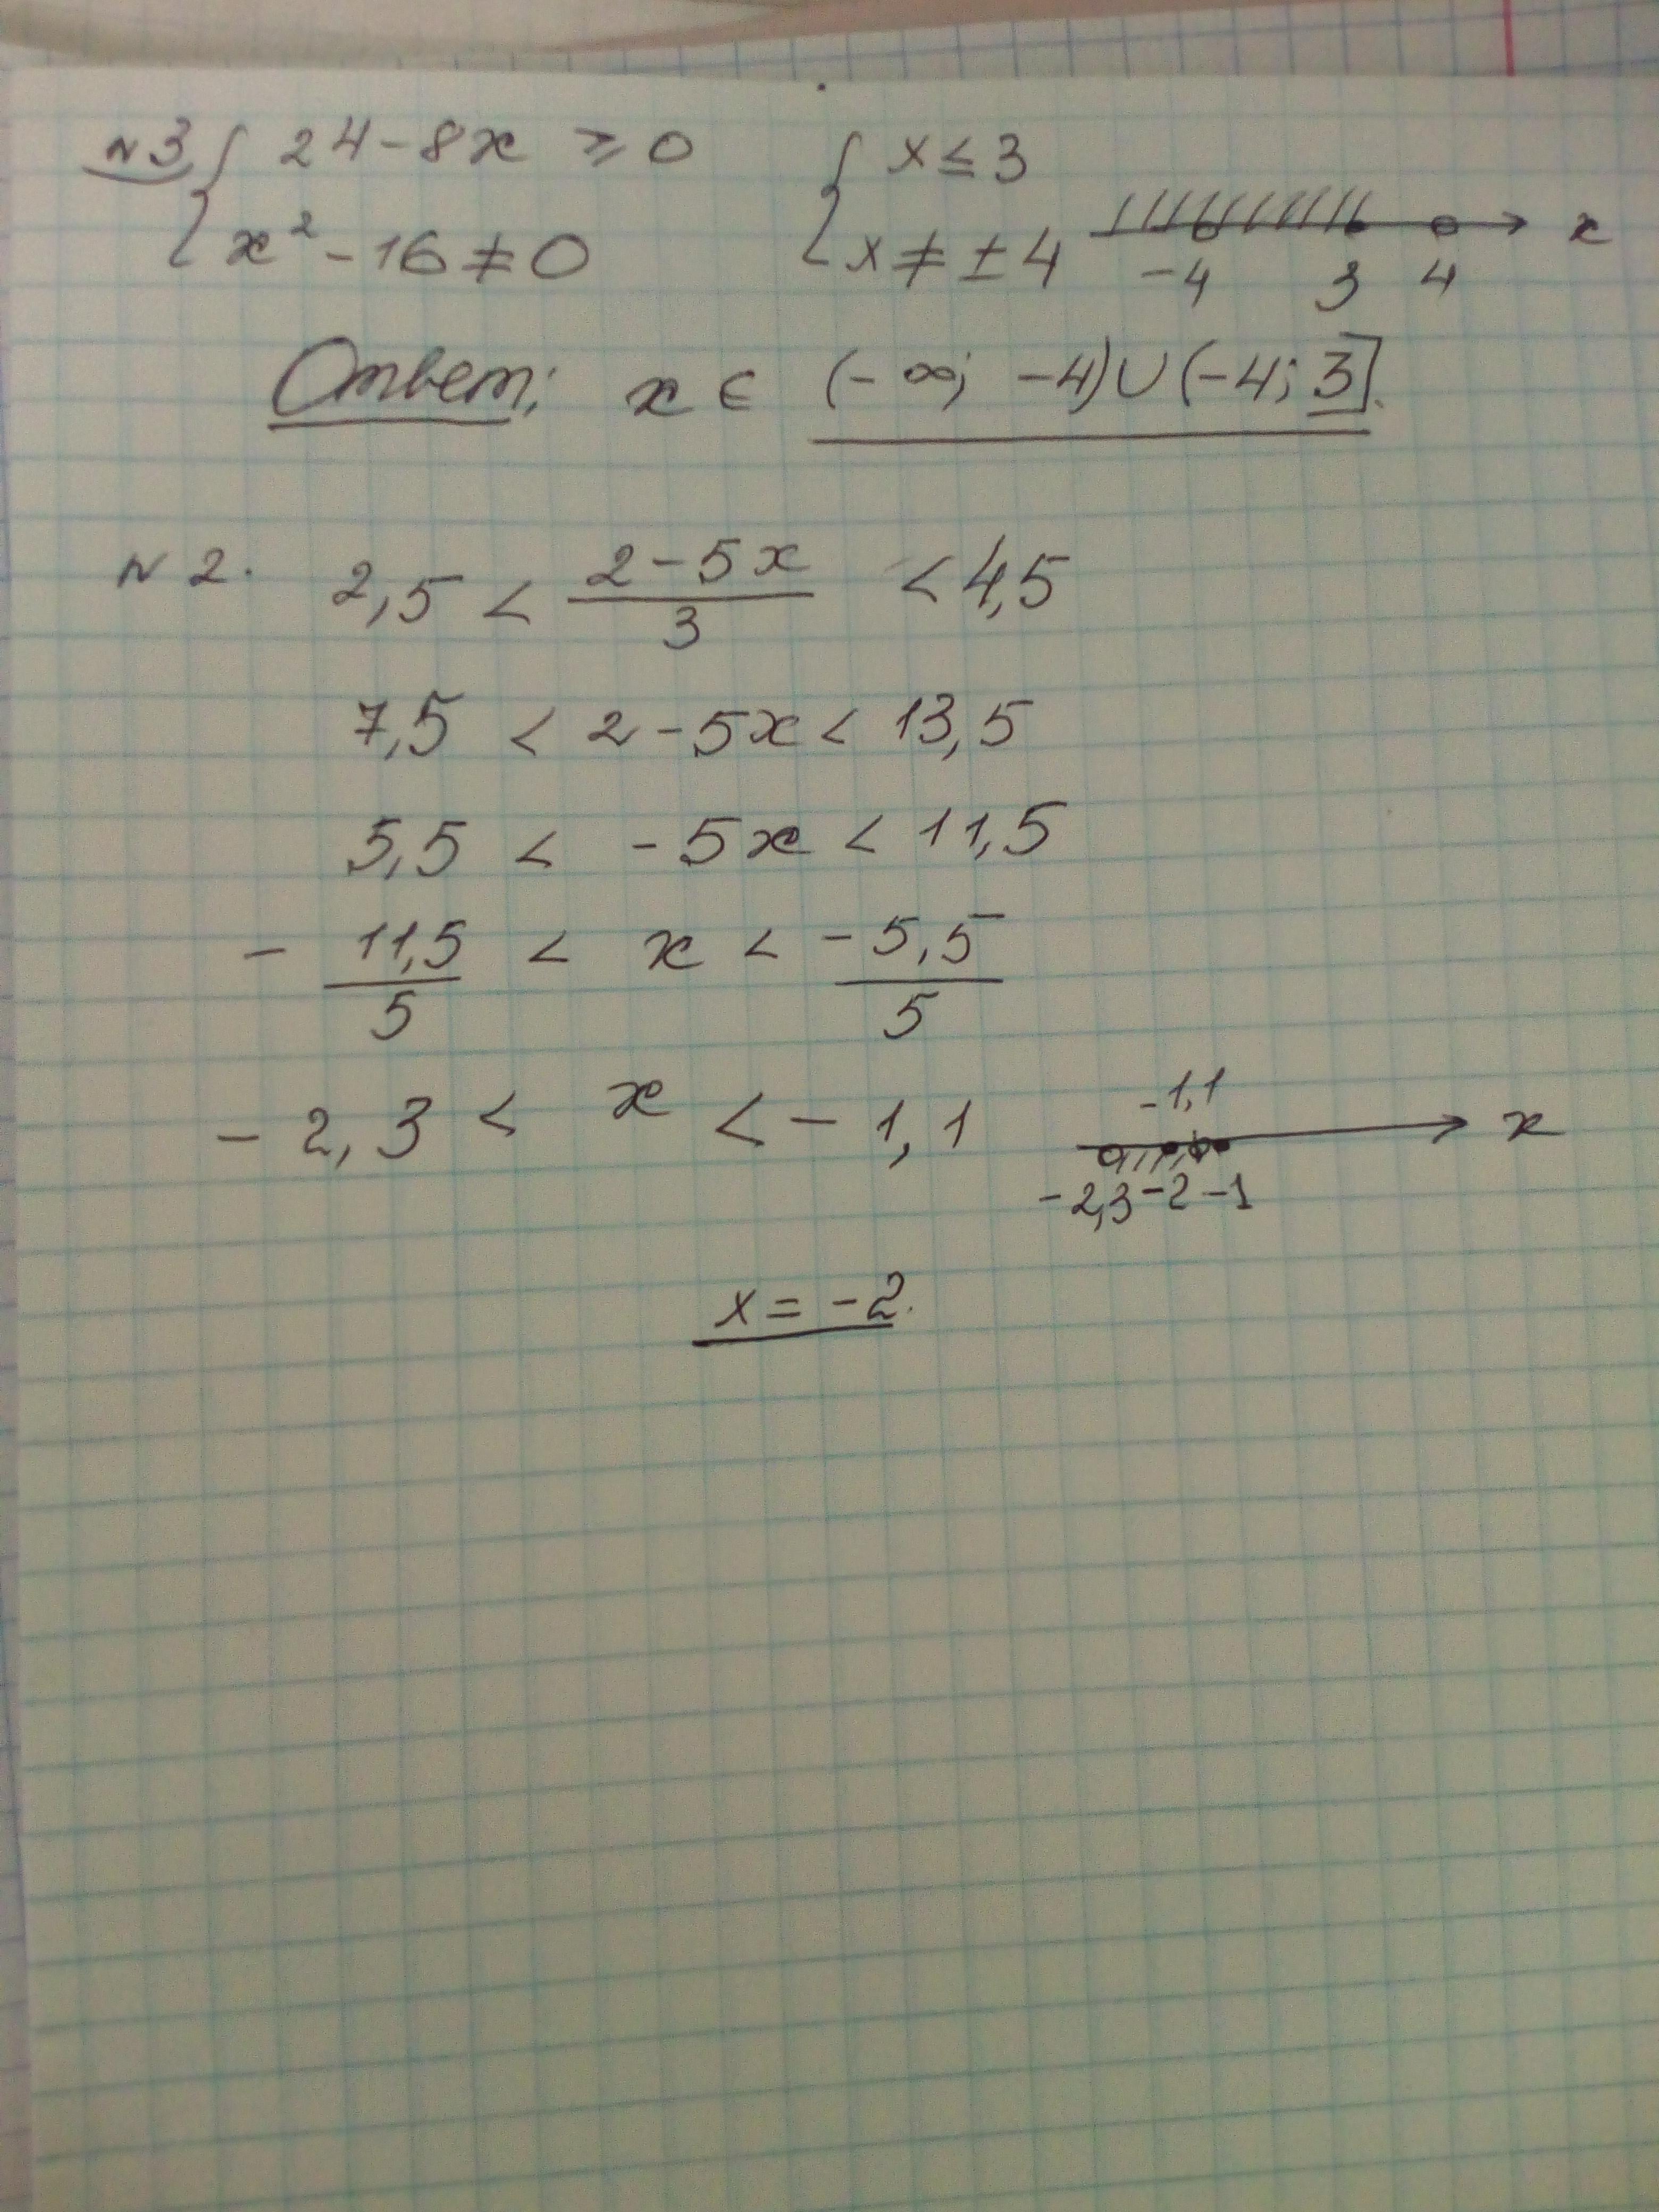 №3 { 24-8x ≥ 0 { x ≤ 3
x² - 16 ≠ 0 x ≠ ±4 -4 3 4 x
Ответ: x ∈ (-∞; -4)∪(-4; 3].
№2. 2,5 < (2-5x)/3 < 4,5
7,5 < 2-5x < 13,5
5,5 < -5x < 11,5
- 11,5/5 < x < -5,5/5
-2,3 < x < -1,1 -1,1 x
-2,3 -2 -1
x = -2.